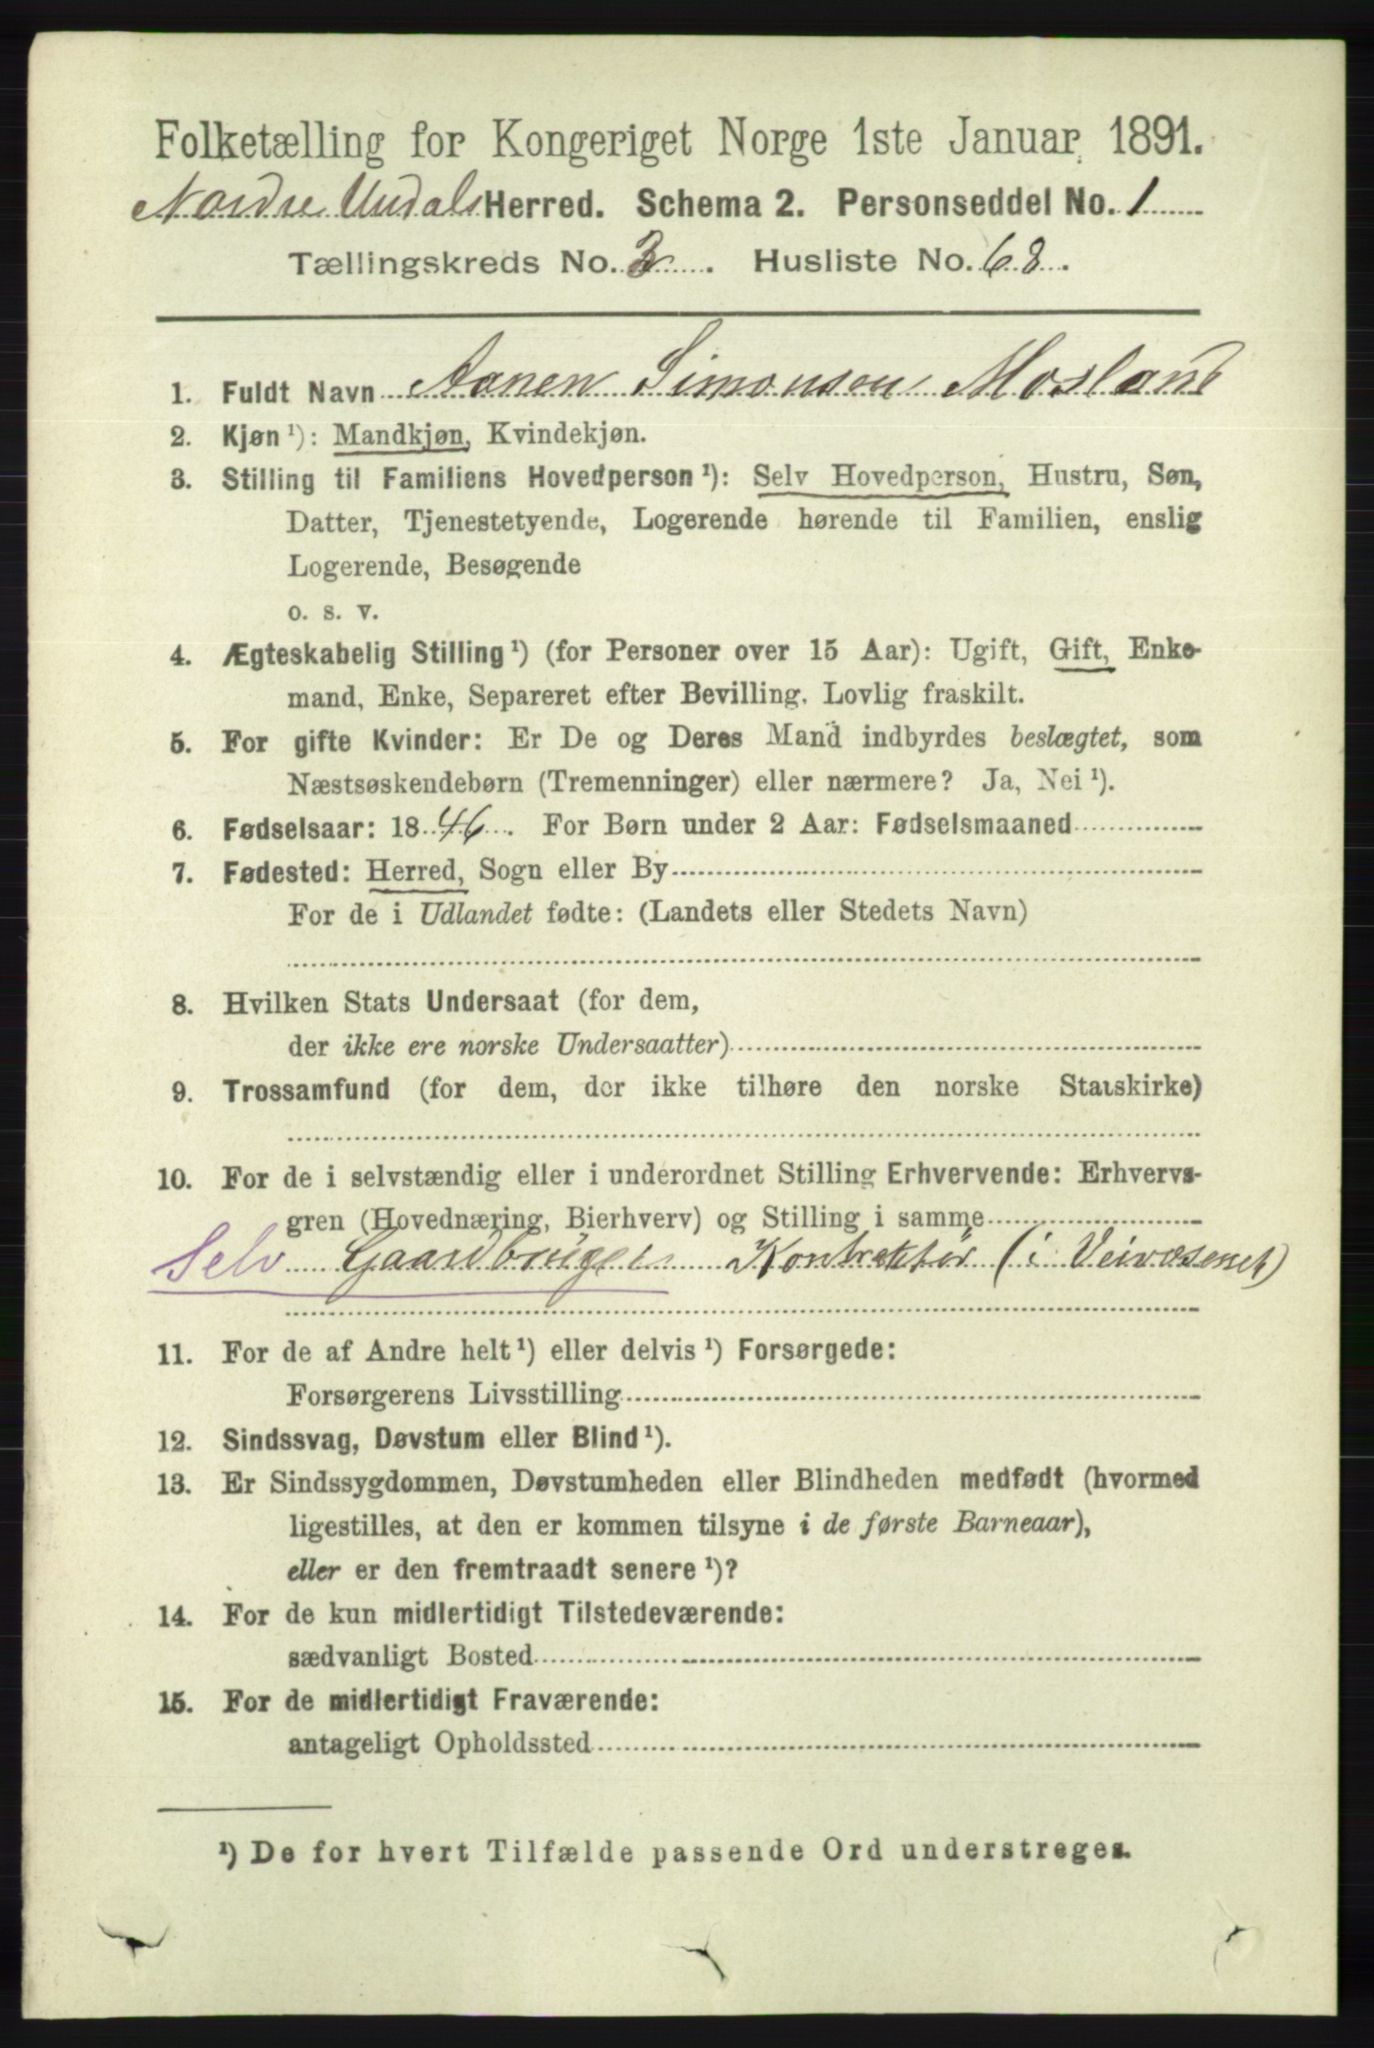 Folketælling for Kongeriget Norge 1ste Januar 1891.
Nordre Undals Herred. Schema 2. Personseddel No. 1
Tællingskreds No. 3. Husliste No. 68.
1. Fuldt Navn Aanen Simonsen Mosland
2. Kjøn ¹): Mandkjøn, Kvindekjøn.
3. Stilling til Familiens Hovedperson ¹): Selv Hovedperson, Hustru, Søn,
Datter, Tjenestetyende, Logerende hørende til Familien, enslig
Logerende, Besøgende
o. s. v.
4. Ægteskabelig Stilling ¹) (for Personer over 15 Aar): Ugift, Gift, Enke-
mand, Enke, Separeret efter Bevilling. Lovlig fraskilt.
5. For gifte Kvinder: Er De og Deres Mand indbyrdes beslægtet, som
Næstsøskendebørn (Tremenninger) eller nærmere? Ja, Nei ¹).
6. Fødselsaar: 1846. For Børn under 2 Aar: Fødselsmaaned
7. Fødested: Herred, Sogn eller By
For de i Udlandet fødte: (Landets eller Stedets Navn)
8. Hvilken Stats Undersaat (for dem,
der ikke ere norske Undersaatter)
9. Trossamfund (for dem, der ikke tilhøre den norske Statskirke)
10. For de i selvstændig eller i underordnet Stilling Erhvervende: Erhvervs-
gren (Hovednæring, Bierhverv) og Stilling i samme
Selv Gaardbruger Kontraktör (i Veivæsenet)
11. For de af Andre helt ¹) eller delvis ¹) Forsørgede:
Forsørgerens Livsstilling
12. Sindssvag, Døvstum eller Blind ¹).
13. Er Sindssygdommen, Døvstumheden eller Blindheden medfødt (hvormed
ligestilles, at den er kommen tilsyne i de første Barneaar),
eller er den fremtraadt senere ¹)?
14. For de kun midlertidigt Tilstedeværende:
sædvanligt Bosted
15. For de midlertidigt Fraværende:
antageligt Opholdssted
¹) De for hvert Tilfælde passende Ord understreges.